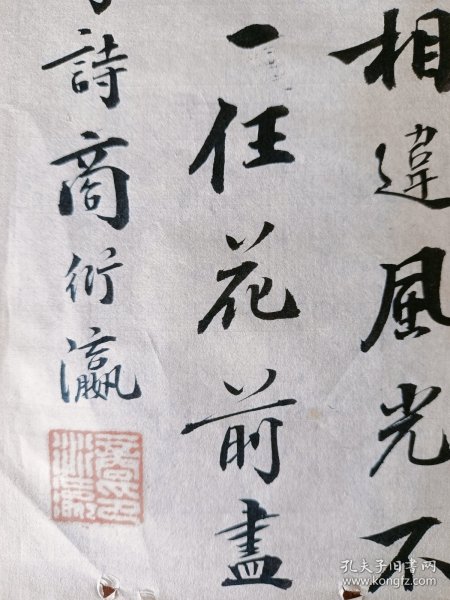 相違風光不
一任花前盡
詩商衍瀛
孔夫子旧书网
www.kongfz.com